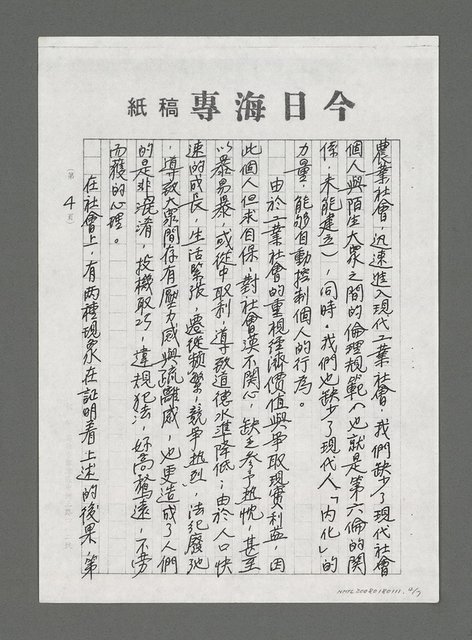 今日海專 稿紙
農業社會，迅速進入現代工業社會，我們缺少了現代社會
個人與陌生大眾之間的倫理規範（也就是第六倫的關
係，未能建立），同時，我們也缺少了現代人「內化」的
力量，能夠自動控制個人的行為。
由於工業社會的重視經濟價值與爭取現實利益，因
此個人但求自保，對社會漠不關心，缺乏參予熱忱，甚至
以暴易暴，或從中取利，導致道德水準降低；由於人口快
速的成長，生活緊張，遷徙頻繁，競爭熱烈，法紀廢弛
，導致大眾間存有壓力感與疏離感，也更造成了人們
的是非混淆，投機取巧，違規犯法，好高騖遠，不勞
而穫的心理。
在社會上，有兩種現象在証明着上述的後果，第
第 4 頁
NMTL20080180111 4/7